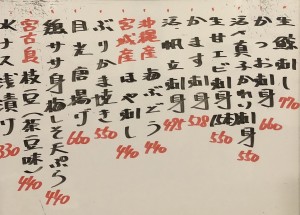 生鮫刺し 770
かつお刺身 660
活〆真子かれい刺身 550
生甘エビ刺身 550
かます刺身 528
活帆立刺身 495
沖縄産海ぶどう 440
宮城産ほや刺し 440
ぶりかま焼き 550
目光唐揚げ 660
鶏ササ身梅しそ天ぷら 440
宮古島枝豆(茶豆味) 440
水ナス浅漬け 330